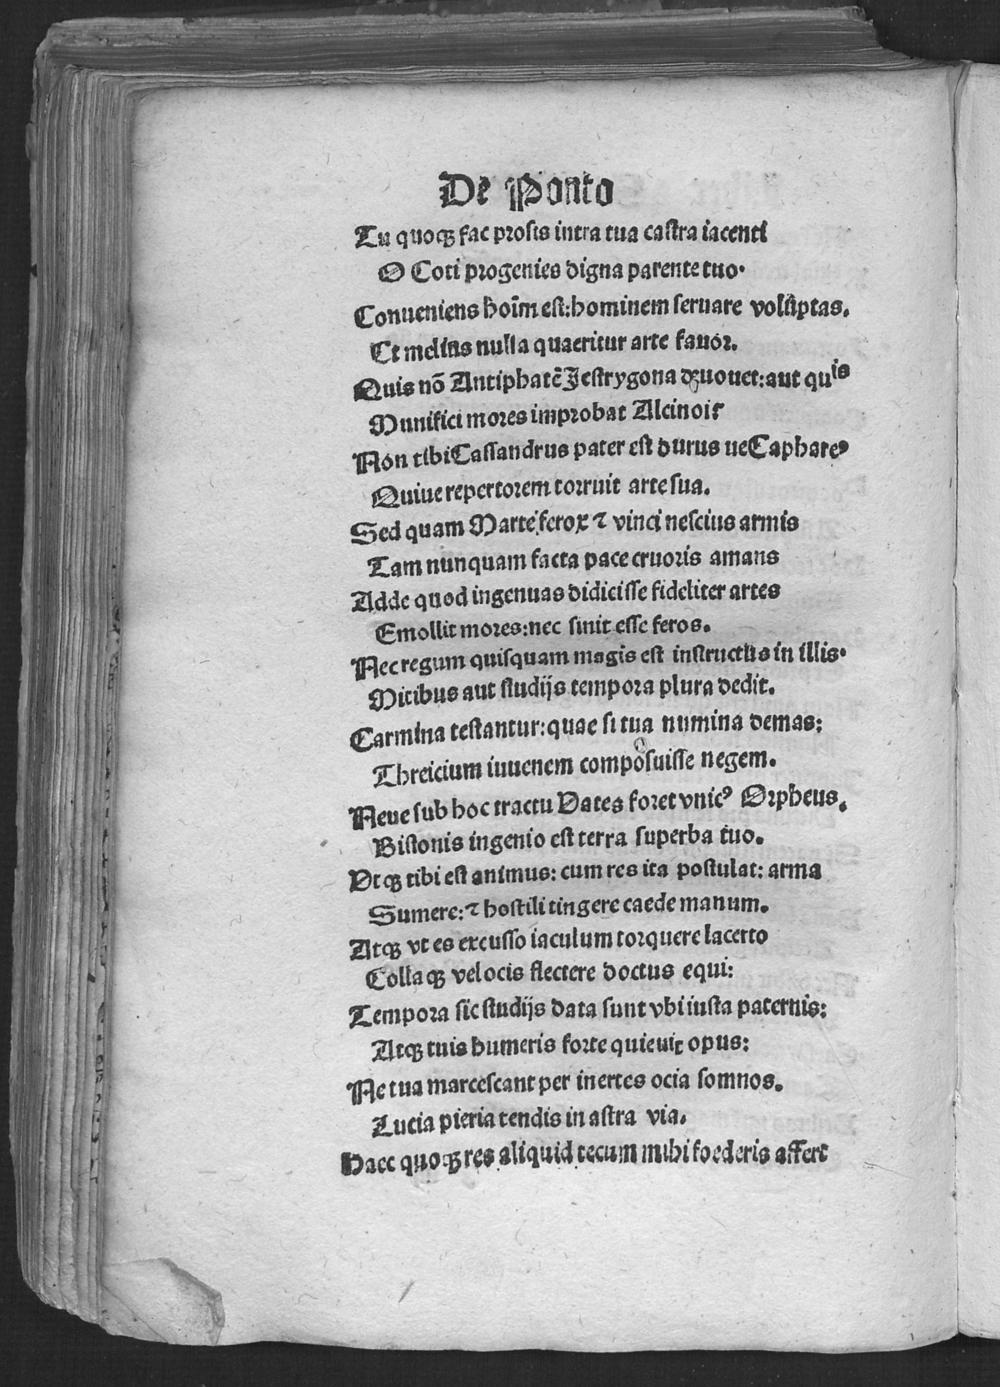 De Ponto
Tu quoqꝫ fac prosis intra tua castra iacenti
O Coti progenies digna parente tuo·
Conueniens hoīm est:hominem seruare voluptas.
Et melius nulla quaeritur arte fauor.
Quis nō Antiphatē Iestrygona deuouet:aut quis
Munifici mores improbat Alcinoi?
Non tibi Cassandrus pater est durus ue Caphareꝰ
Quiue repertorem torruit arte sua.
Sed quam Marte ferox ⁊ vinci nescius armis
Tam nunquam facta pace cruoris amans
Adde quod ingenuas didicisse fideliter artes
Emollit mores:nec sinit esse feros.
Nec regum quisquam magis est instructus in illis·
Mitibus aut studijs tempora plura dedit.
Carmina testantur:quae si tua numina demas:
Threicium iuuenem composuisse negem.
Neue sub hoc tractu Vates foret vnicꝰ Orpheus.
Bistonis ingenio est terra superba tuo.
Vtqꝫ tibi est animus: cum res ita postulat: arma
Sumere:⁊ hostili tingere caede manum.
Atqꝫ vt es excusso iaculum torquere lacerto
Collaqꝫ velocis flectere doctus equi:
Tempora sic studijs data sunt vbi iusta paternis:
Atqꝫ tuis humeris forte quieuit opus:
Ne tua marcescant per inertes ocia somnos.
Lucia pieria tendis in astra via.
Haec quoqꝫ res aliquid tecum mihi foederis affert